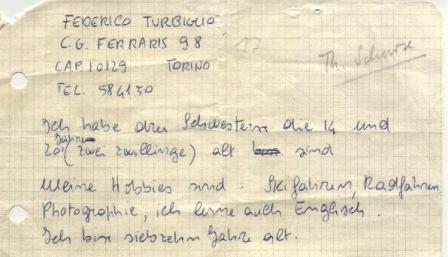 FEDERICO TURBIGLIO
C.G. FERRARIS 98 17
CAP 10129 TORINO
TEL. 584170
Ich habe drei Schwestern die 14 und
Jahre
20 (zwei zwillinge) alt sind
Meine Hobbies sind: Skifahren, Radfahren
Photographie, ich lerne auch Englisch.
Ich bin siebzehn Jahre alt.